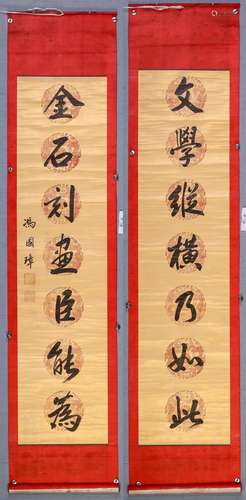 文學縱橫乃如此
金石刻畫臣能為
馮國璋